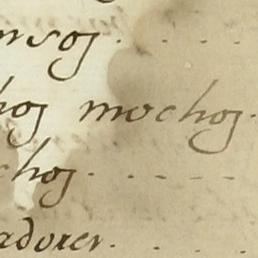 nsos
hos mochos
chos
adores